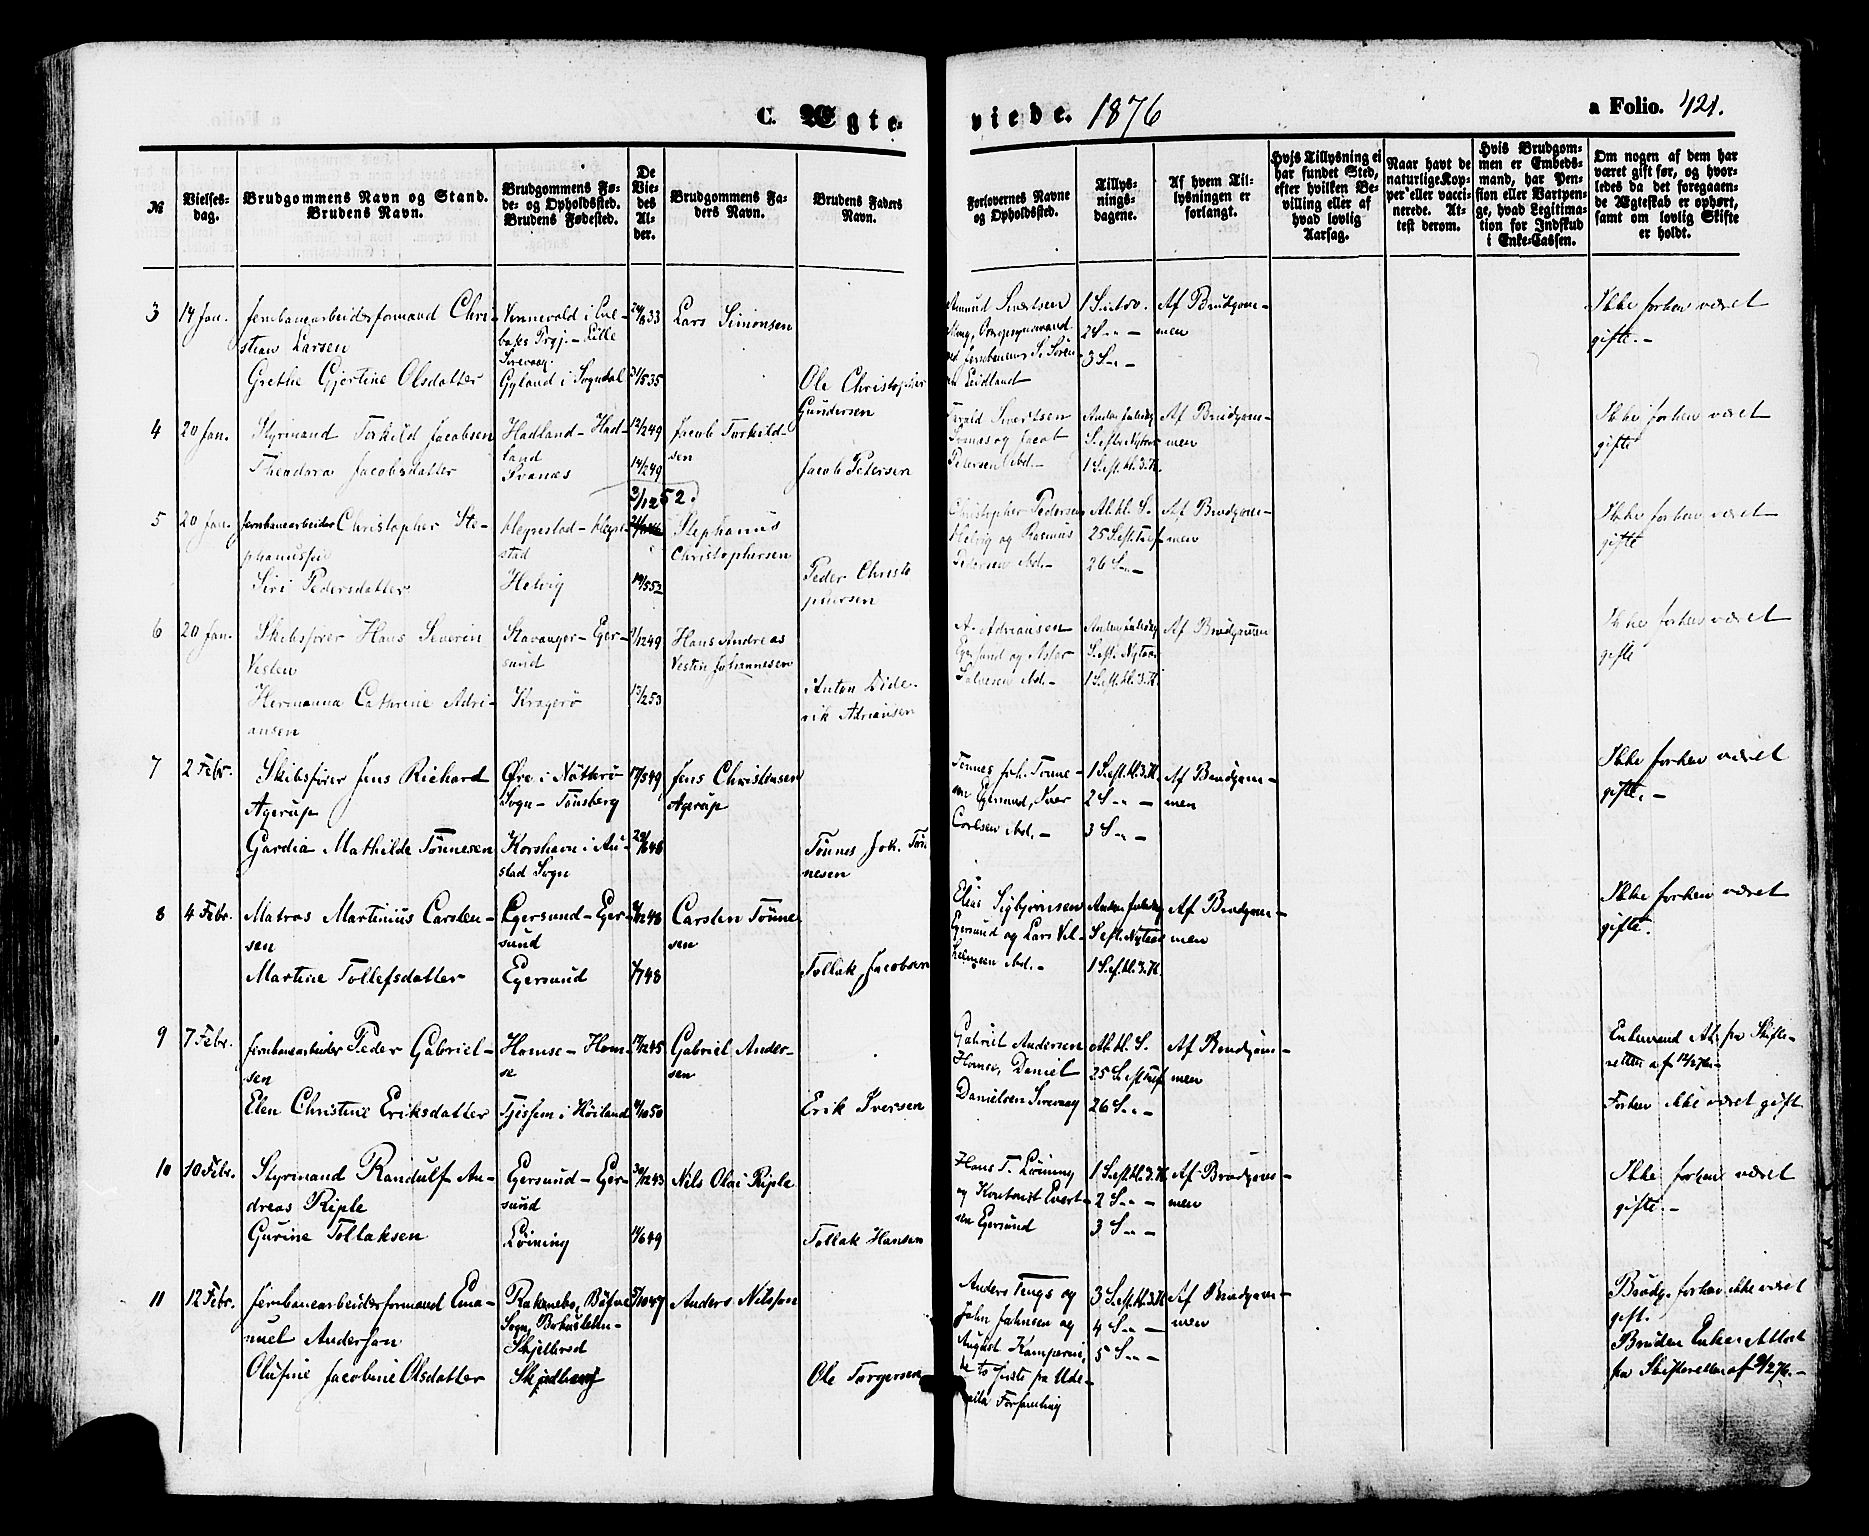 C. Ægte-
viede. 1876
a Folio. 421.
№
Vielses-
dag.
Brudgommens Navn og Stand.
Brudens Navn.
Brudgommens Fø-
de- og Opholdssted.
Brudens Fødested.
De
Vie-
des
Al-
der.
Brudgommens Fa-
ders Navn.
Brudens Faders
Navn.
Forlovernes Navne
og Opholdssted.
Tillys-
nings-
dagene.
Af hvem Til-
lysningen er
forlangt.
Hvis Tillysning ei
har fundet Sted,
efter hvilken Be-
villing eller af
hvad lovlig
Aarsag.
Naar havt de
naturlige Kop-
per eller vacci-
nerede. At-
test derom.
Hvis Brudgom-
men er Embeds-
mand, har Pen-
sion eller Vartpen-
ge, hvad Legitima-
tion for Indskud
i Enke-Cassen.
Om nogen af dem har
været gift før, og hvor-
ledes da det foregaaen-
de Ægteskab er ophørt,
samt om lovlig Skifte
er holdt.
3 14 Jan.
Jernbanearbeiderformand Chri-
stian Larsen
Grethe Gjertine Olsdatter
Lille
Sirevaag
Gyland i Sogndal
Lars Simonsen
Ole Christopher
Gundersen
1 S.
2 S. -
3 S. -
Af Brudgom-
men
Ikke forhen været
gifte. -
4 20 Jan.
Styrmand Torkild Jacobsen
Theodora Jacobsdatter
Hadland - Had-
land
Svanæs
12/2 49
14/2 49
Jacob Torkild-
sen
Jacob Petersen
Sivertsen
og Jacob
Petersen ibd. -
Anden Juledag
S. eft. Nytaar
1 S. eft. hl. 3. K.
Af Brudgom-
men
Ikke forhen været
gifte
5 20 Jan.
Jernbanearbeider Christopher Ste-
phanussen
Siri Pedersdatter
Hegrestad - Hegre-
stad
Helvig
3/12 52.
19/5 52
Stephanus
Christophersen
Peder Christo
phersen
Christopher Pedersen
Helvig og Rasmus
Petersen ibd. -
25 S. eft. Tref
26 S. -
Af Brudgom-
men
Ikke forhen været
gifte
6 20 Jan.
Skibsfører Hans Severin
Vesten
Hermanna Cathrine Adri-
ansen
Stavanger - Eger-
sund
Kragerø
13/2 53
Hans Andreas
Vesten Johannesen
Anton Dide-
rik Adriansen
A. Adriansen
Egersund og
ibd. -
Anden Juledag
S. eft. Nytaar
1 S. eft. hl. 3. K.
Af Brudgommen
Ikke forhen været
gifte
7 2 Febr.
Skibsfører Jens Richard
Agerup
Gardia Mathilde Tønnesen
Øre i Nøtterø
Sogn - Tønsberg
Korshavn i Au-
stad Sogn
17/5 49
Jens Christensen
Agerup
Tønnes Joh. Tøn
nesen
Tønnes Joh. Tønne-
sen Egersund,
ibd. -
1 S. eft. hl. 3. K.
2 S. -
3 S. -
Af Brudgom-
men
Ikke forhen været
gifte. -
8 4 Febr.
Matros Martinius Carsten-
sen
Martine Tollefsdatter
Egersund - Eger-
sund
Egersund
Carsten Tønne
sen
Tollak Jacobsen
Elias Sigbjørnsen
Egersund og Lars Vil-
helmsen ibd. -
Anden Juledag
S. eft. Nytaar
1 S. eft. hl. 3. K.
Af Brudgom-
men
Ikke forhen været
gifte.
9 7 Febr.
Jernbanearbeider Peder Gabriel-
sen
Elen Christine Eriksdatter
Homse - Hom-
se
Tjessem i Høiland
17/2 45
Gabriel Ander-
sen
Erik Iversen
Gabriel Andersen
Homse, Daniel
Danielsen Sirevaag
25 S. eft. Tref
26 S. -
Af Brudgom-
men
Enkemand Att. fra Skifte-
retten af 12/2 76. -
Forhen ikke været gift
10 10 Febr.
Styrmand Randulf An-
dreas Riple
Gurine Tollaksen
Egersund - Eger-
sund
Løining
30/12 43
Nils Olai Riple
Tollak Hansen
Hans T. Løining
og Kontorist Evert-
sen Egersund
1 S. eft. hl. 3. K.
2 S. -
3 S. -
Af Brudgom-
men
Ikke forhen været
gifte. -
11 12 Febr.
Jernbanearbeiderformand Ema-
nuel Andersson
Olufine Jacobine Olsdatter
Sogn,
Skjelbred
Anders Nilsson
Ole Torgersen
Anders Tengs og
John Johnsen og
August
de to første paa Ude-
3 S. eft. hl. 3. K.
4 S. -
5 S. -
Af Brudgom-
men
Brudg. forhen ikke været
gift.
Bruden Enke. Attest
fra Skifteretten af 9/2 76. -